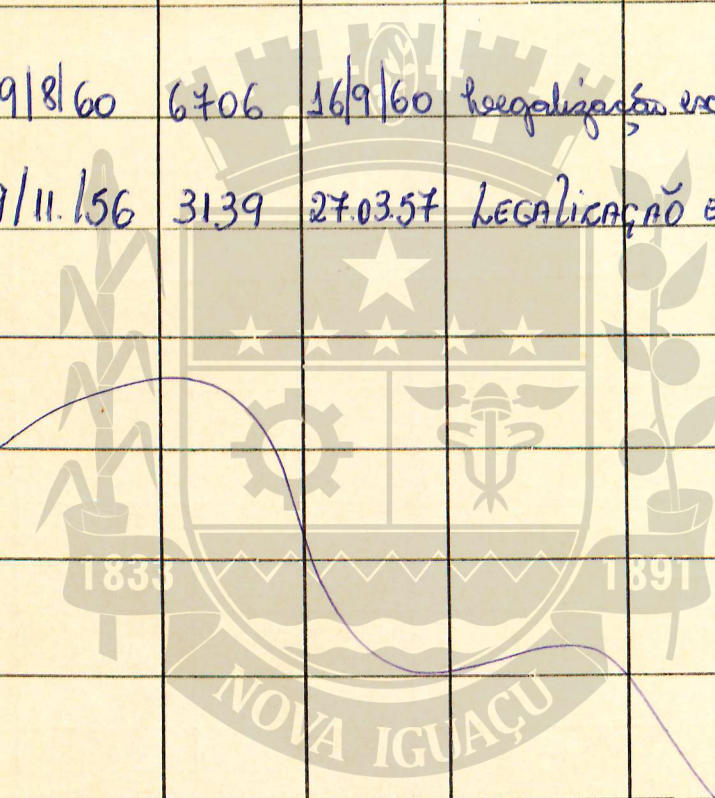 9/8/60 6706 16/9/60 Legalização
9/11./56 3139 27.03.57 LEGALIZAÇÃO
1833 1891
NOVA IGUAÇU